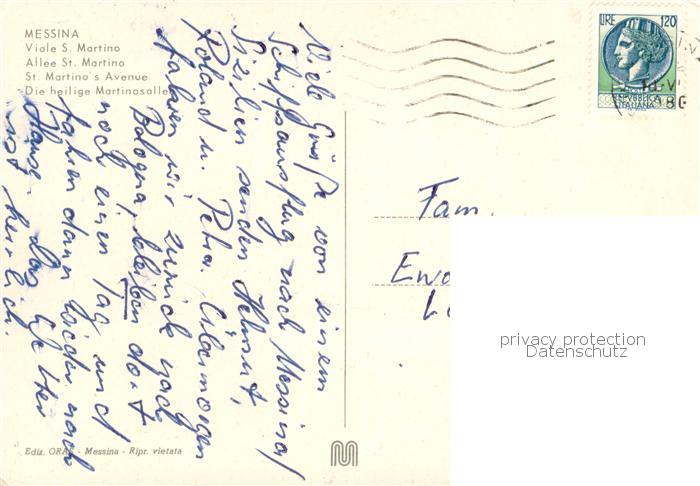 MESSINA
Viale S. Martino
Allee St. Martino
St. Martino's Avenue
Die heilige Martinosallee
LIRE 120
REPVBBLICA
ITALIANA
Viele Grüße von einem
Schiffsausflug nach Messina/
Sizilien senden Helmut,
Roland u. Petra. Übermorgen
fahren wir zurück nach
Bologna, bleiben dort
noch einen Tag und
fahren dann wieder nach
Hause. Das Wetter
ist herrlich.
Fam.
privacy protection
Datenschutz
Ediz. - Messina - Ripr. vietata